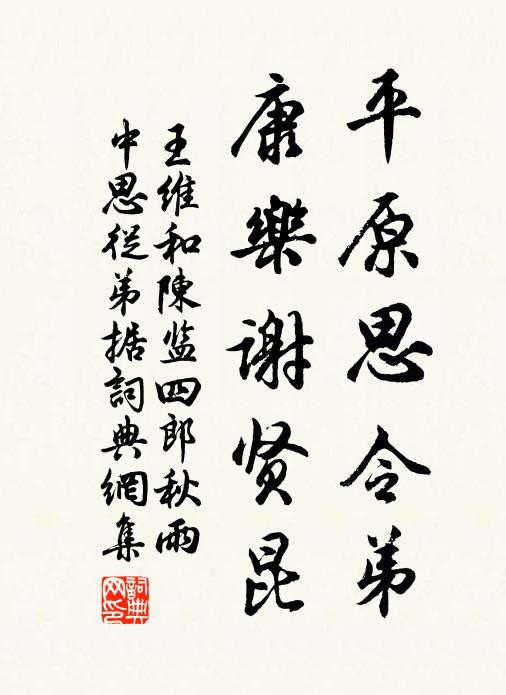 平原思令弟
康樂谢贤昆
王维和陳监四郎秋雨
中思從弟据詞典網集
詞典
网印